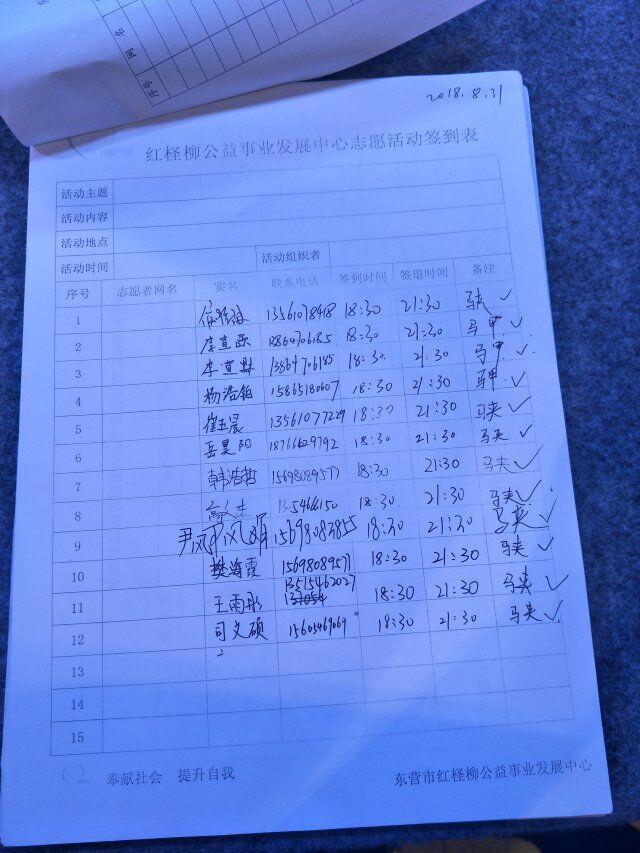 2018.8.21
红柽柳公益事业发展中心志愿活动签到表
活动主题
活动内容
活动地点
活动时间 活动组织者
序号 志愿者网名 实名 联系电话 签到时间 签退时间 备注
1 13561078418 18:30 21:30 马夹 ✓
2 李宜 18:30 21:30 马甲 ✓
3 李宜 13864706185 18:30 21:30 马甲 ✓
4 杨浩铂 15865180607 18:30 21:30 马甲 ✓
5 崔玉晨 13561077229 18:30 21:30 马夹 ✓
6 岳昊阳 18766629792 18:30 21:30 马夹 ✓
7 韩浩哲 15698089577 18:30 21:30 马夹 ✓
8 18:30 21:30 马夹 ✓
9 尹凤 15698083855 18:30 21:30 马夹 ✓
10 樊海霞 15698089577 18:30 21:30 马夹 ✓
11 王雨彤 13515462027 18:30 21:30 马夹 ✓
12 司文硕 15605469069 18:30 21:30 马夹 ✓
13
14
15
奉献社会 提升自我 东营市红柽柳公益事业发展中心